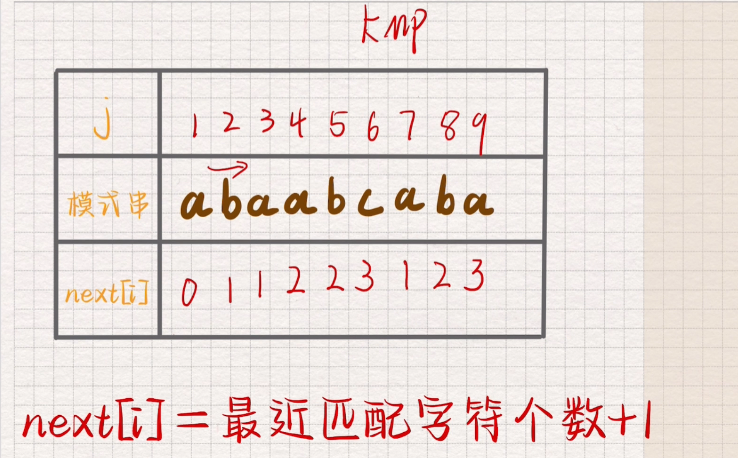 kmp
j 1 2 3 4 5 6 7 8 9
模式串 abaabcaba
next[i] 0 1 1 2 2 3 1 2 3
next[i]=最近匹配字符个数+1